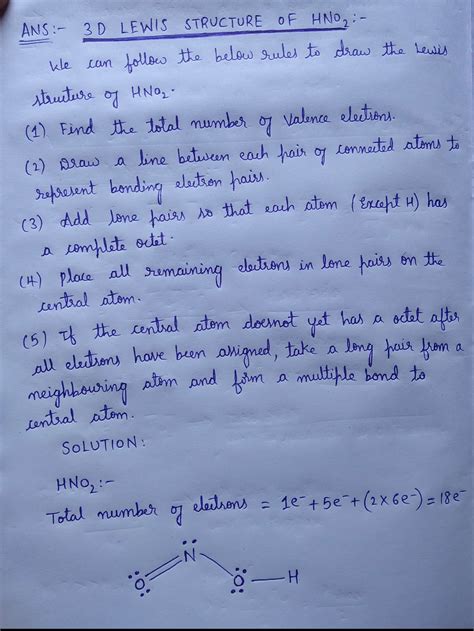 ANS:- 3D LEWIS STRUCTURE OF HNO₂:-
We can follow the below rules to draw the Lewis
struture of HNO₂.
(1) Find the total number of Valence electrons.
(2) Draw a line between each pair of connected atoms to
represent bonding electron pairs.
(3) Add lone pairs so that each atom (Except H) has
a complete octet.
(4) Place all remaining electrons in lone pairs on the
central atom.
(5) If the central atom doesnot yet has a octet after
all electrons have been assigned, take a long pair from a
neighbouring atom and form a multiple bond to
central atom.
SOLUTION:
HNO₂:-
Total number of electrons = 1e⁻ + 5e⁻ + (2×6e⁻) = 18e⁻
N
O O — H